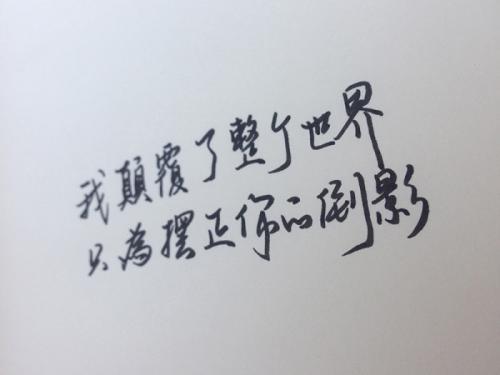 我顛覆了整个世界
只為摆正你的倒影